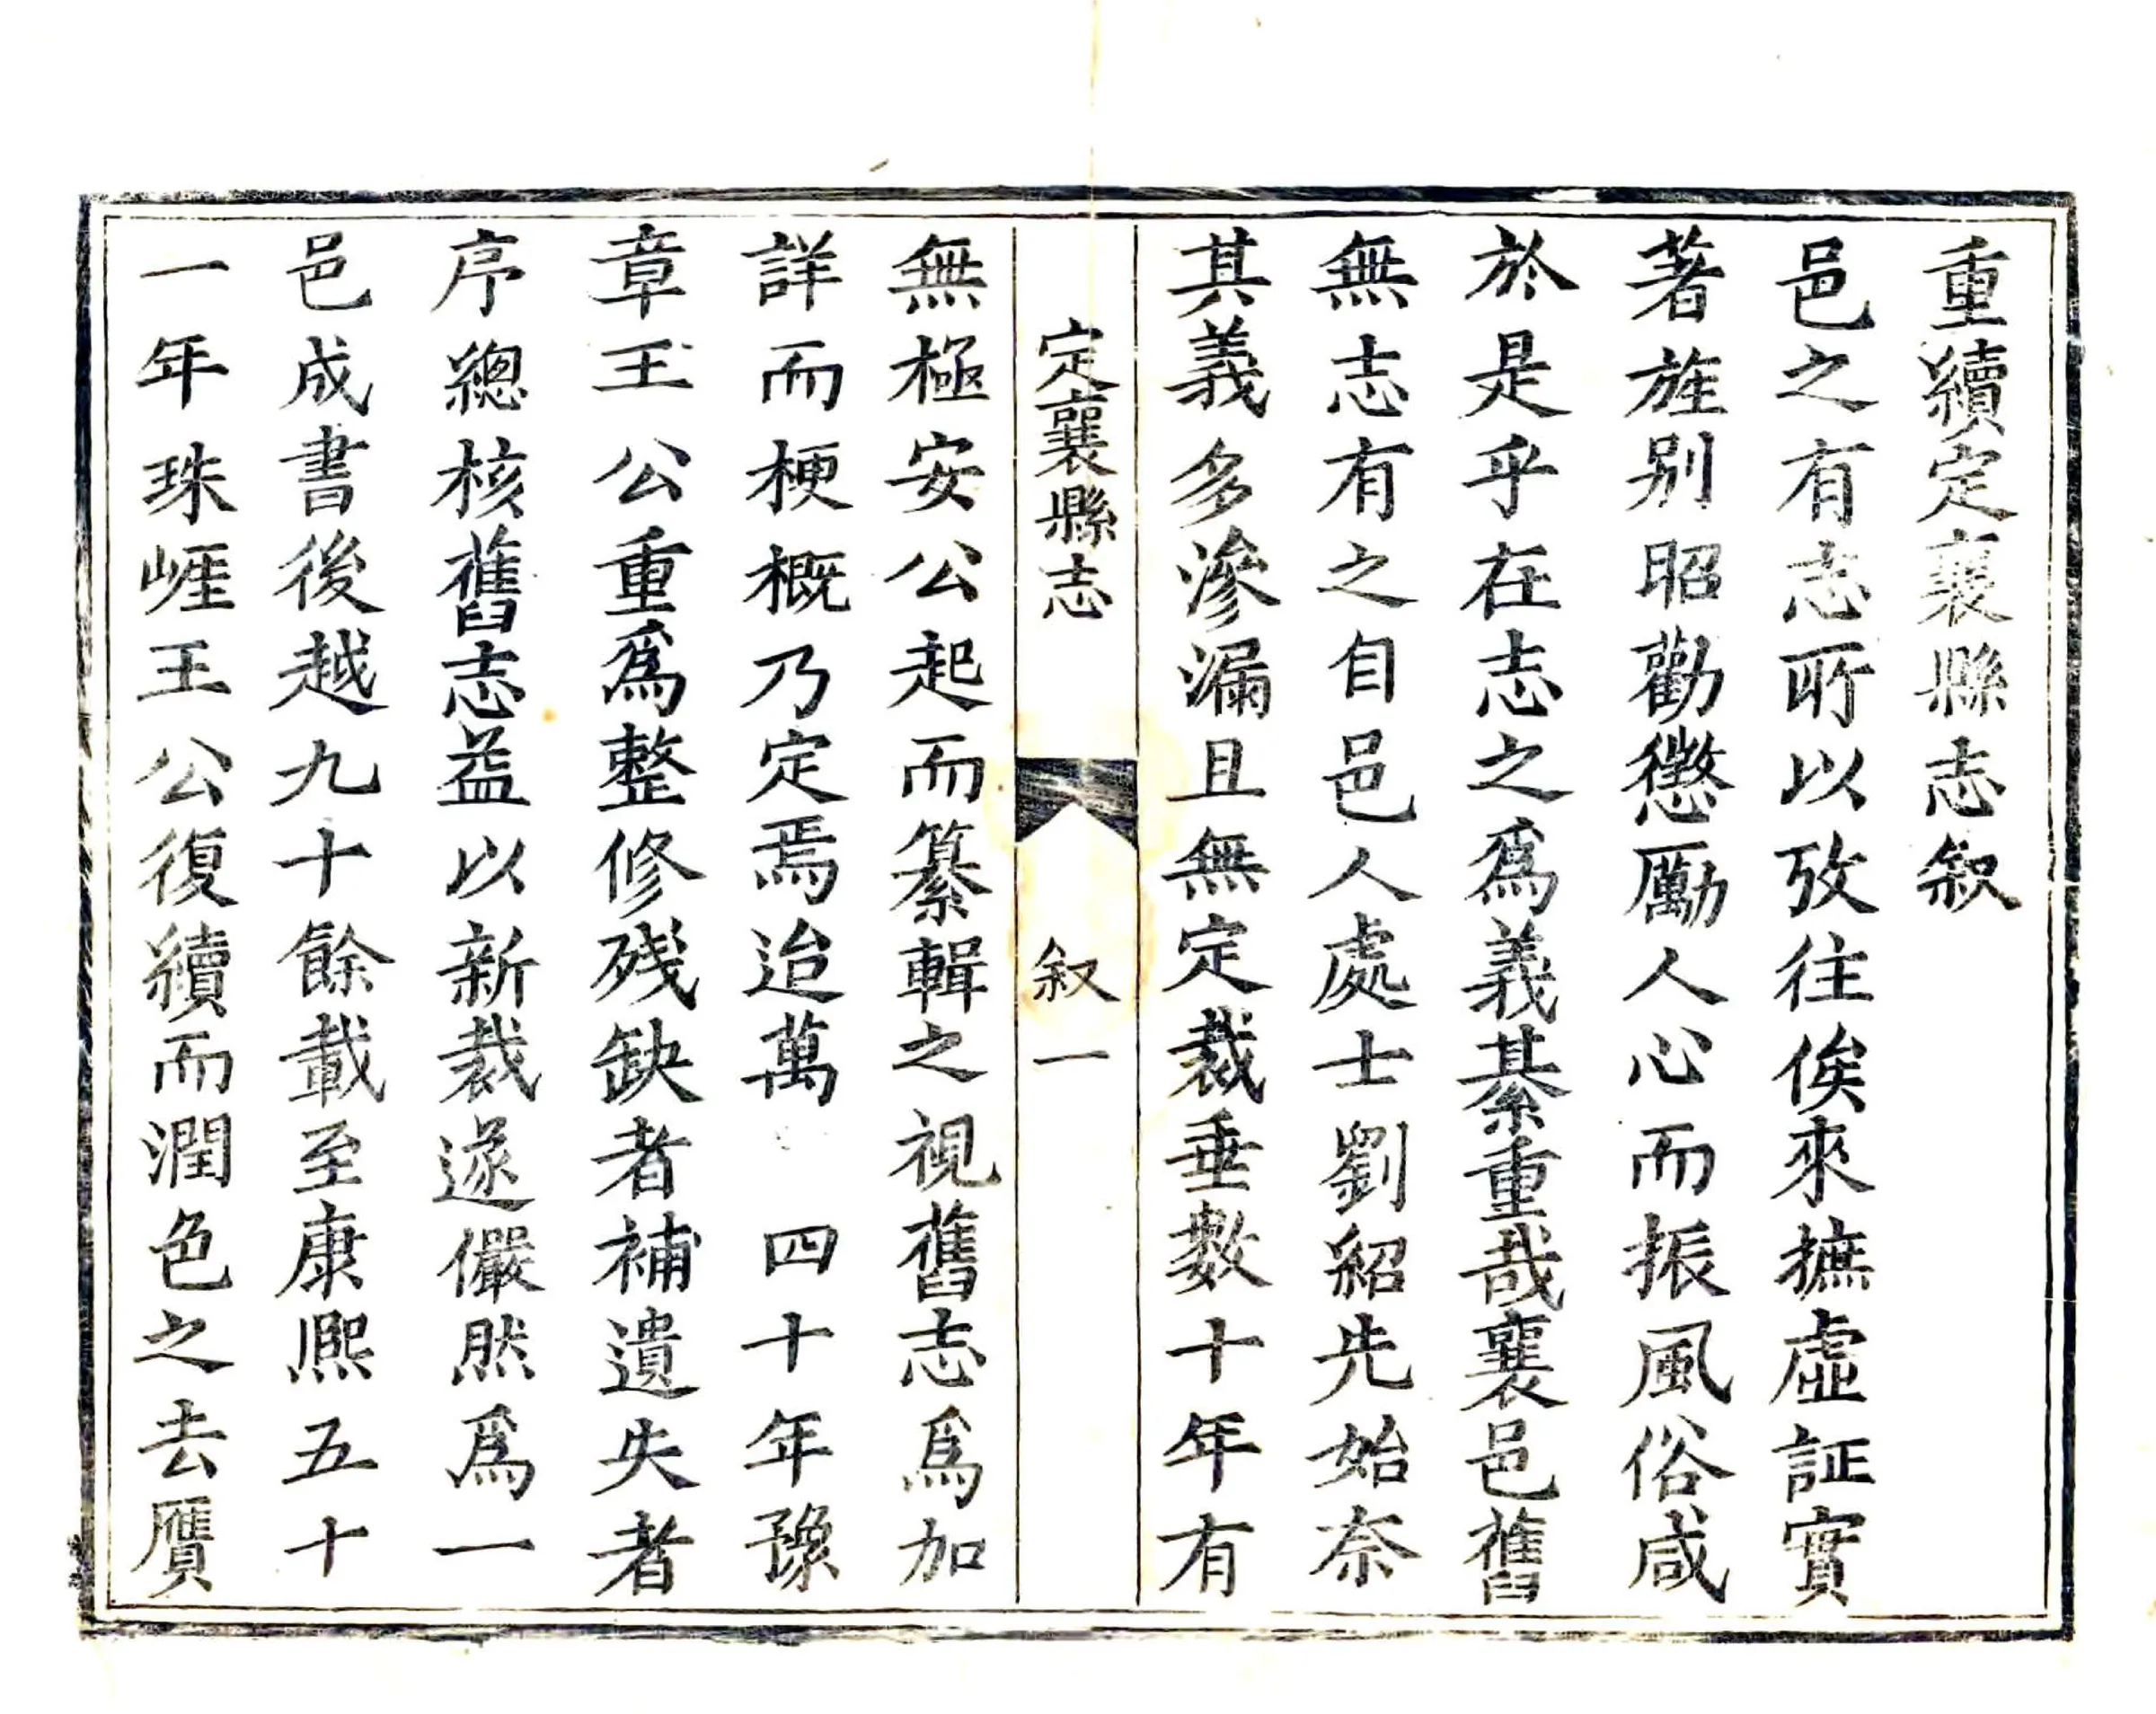 重續定襄縣志叙
邑之有志所以攷往俟來摭虛証實
著旌别昭勸懲厲人心而振風俗咸
於是乎在志之爲義綦重哉襄邑舊
無志有之自邑人處士劉紹先始奈
其義多滲漏且無定裁垂數十年有
定襄縣志 叙 一
無極安公起而纂輯之視舊志爲加
詳而梗概乃定焉迨萬 四十年豫
章王公重爲整修殘缺者補遺失者
序總核舊志益以新裁遂儼然爲一
邑成書後越九十餘載至康熈五十
一年珠崕王公復續而潤色之去贋